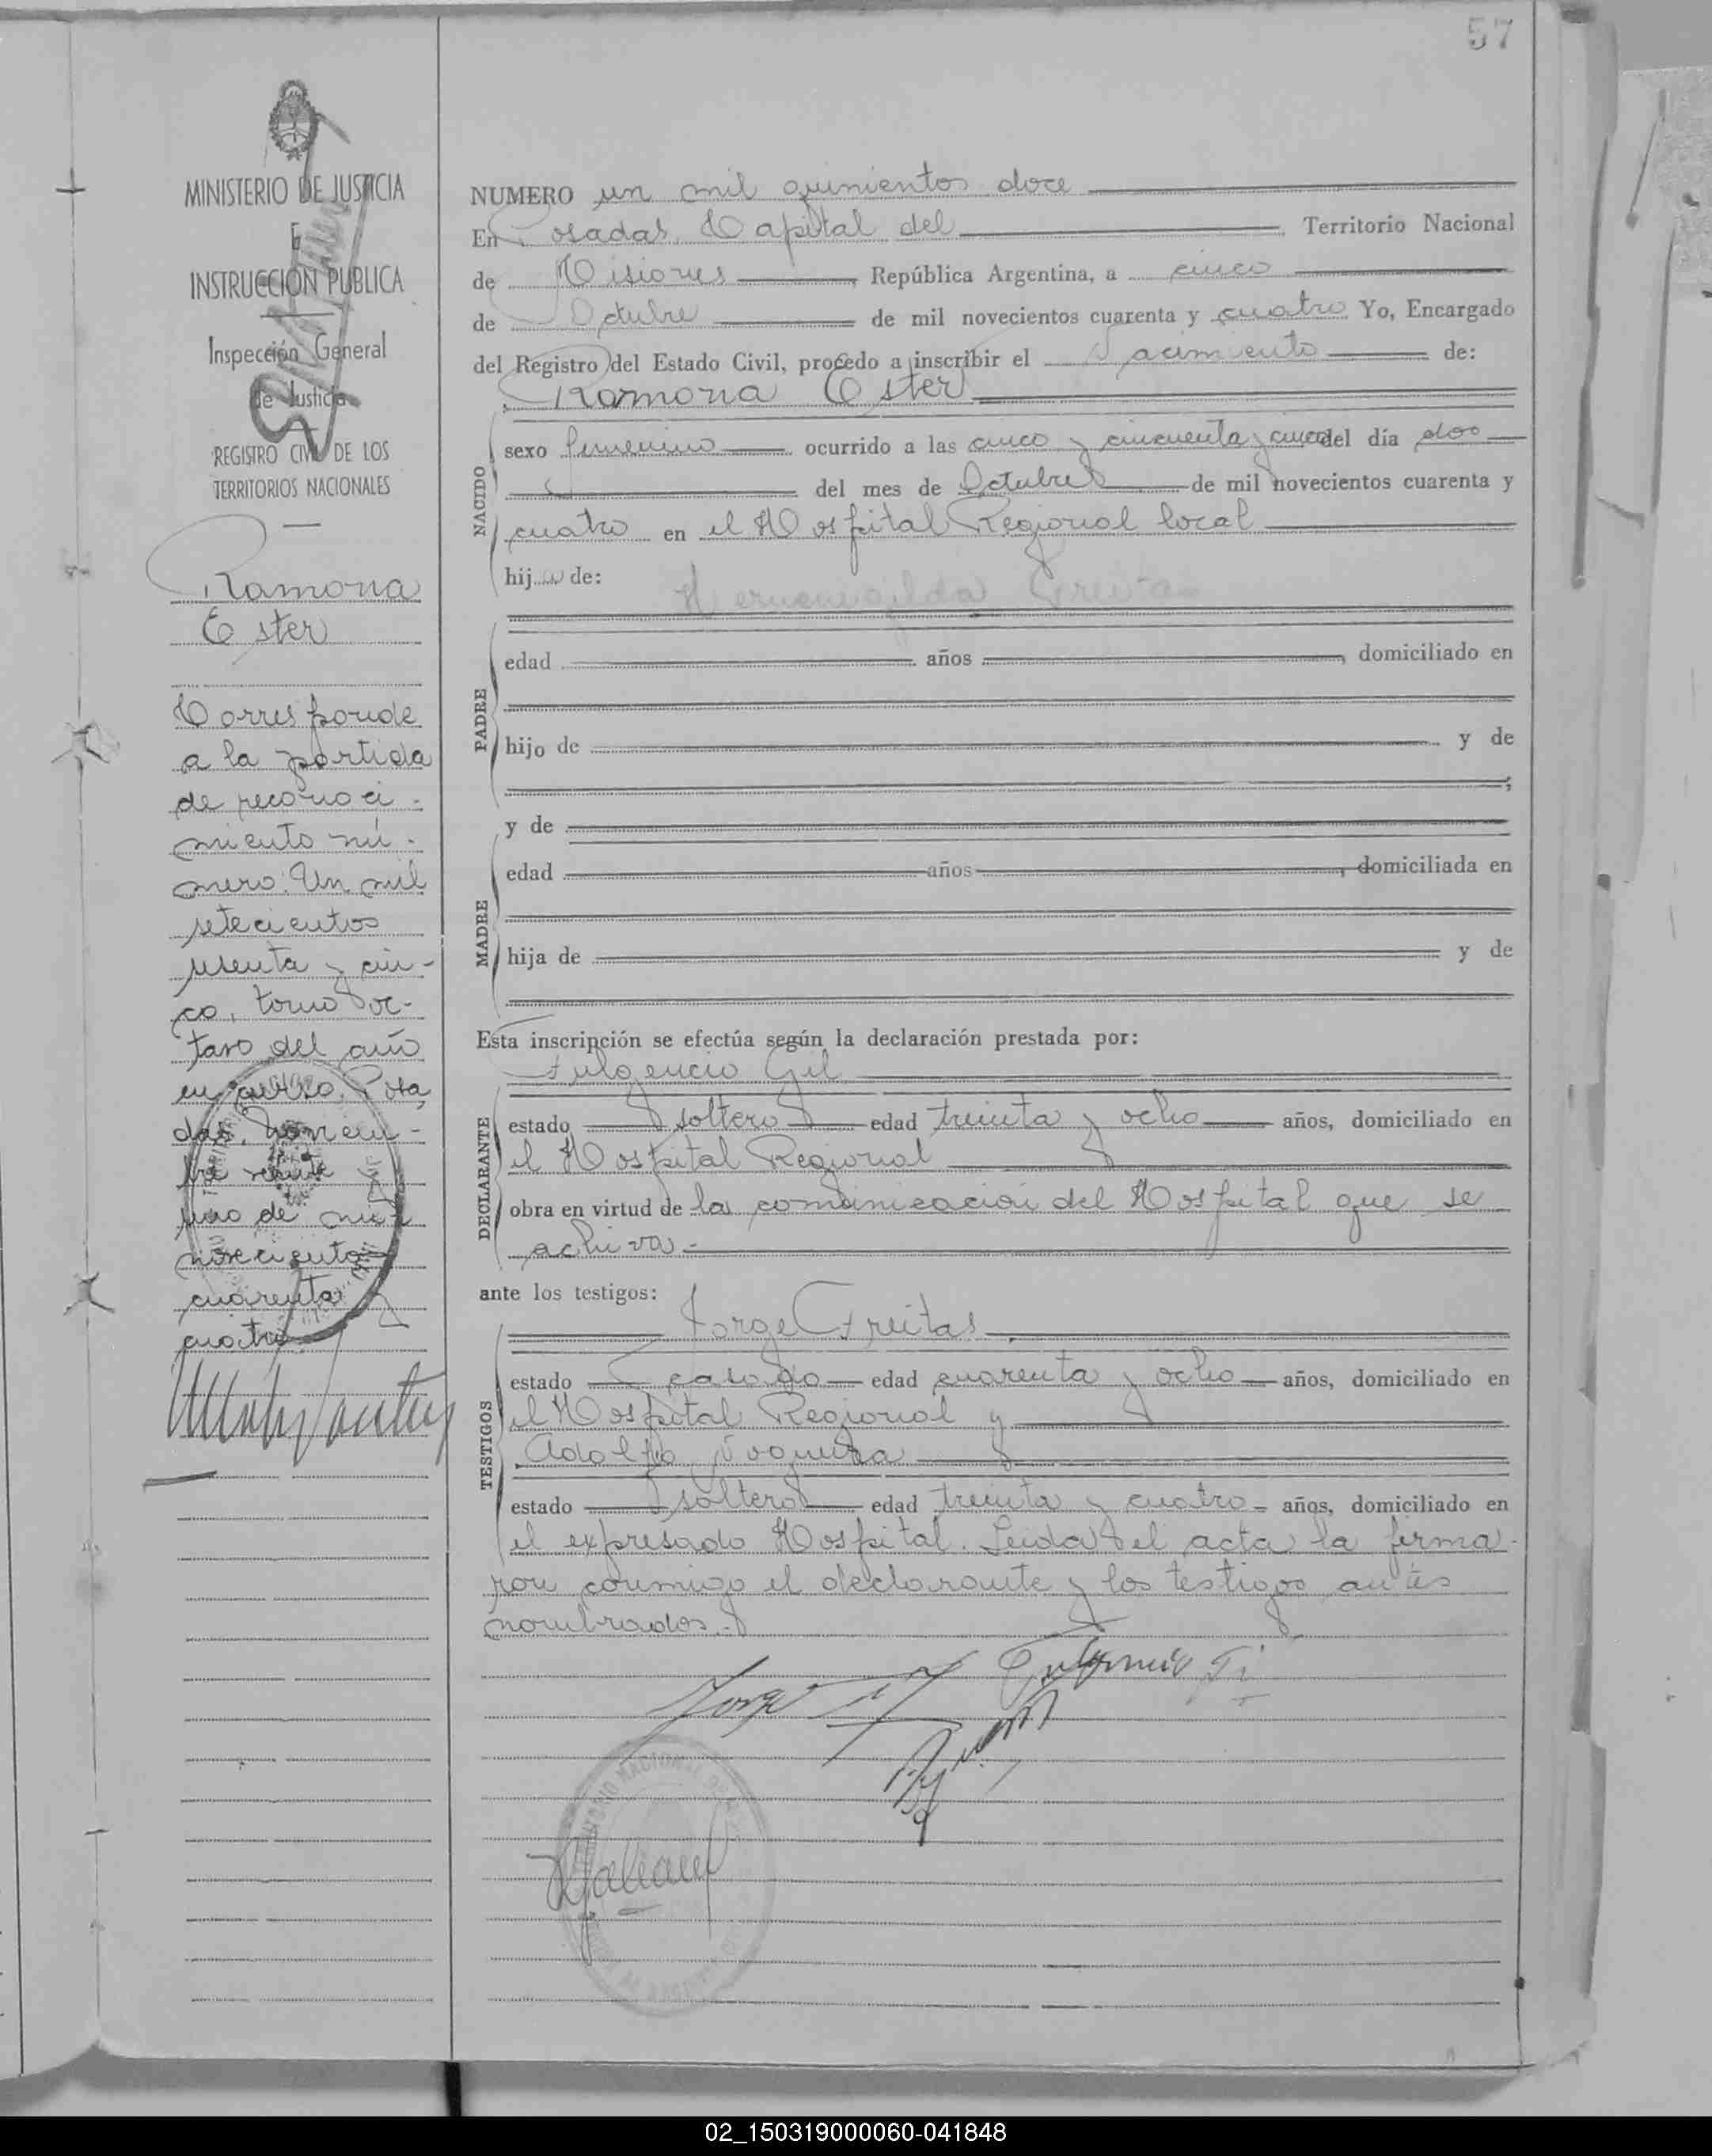 57
MINISTERIO DE JUSTICIA
E
INSTRUCCIÓN PUBLICA
Inspección General
de Justicia
REGISTRO CIVIL DE LOS
TERRITORIOS NACIONALES
Ramona
Ester
Corresponde
a la partida
de reconoci-
miento nú-
mero: Un mil
setecientos
sesenta y cin-
co, tomo oc-
tavo del año
en curso. Posa
das, Noviem-
bre veinte
uno de mil
novecientos
cuarenta
cuatro.
NUMERO un mil quinientos doce
En Posadas, Capital del Territorio Nacional
de Misiones, República Argentina, a cinco
de Octubre de mil novecientos cuarenta y cuatro Yo, Encargado
del Registro del Estado Civil, procedo a inscribir el Nacimiento de:
Ramona Ester
NACIDO
sexo femenino ocurrido a las cinco y cincuenta y cinco del día dos
del mes de Octubre de mil novecientos cuarenta y
cuatro en el Hospital Regional local
hija de:
Hermenegilda
PADRE
edad años, domiciliado en
hijo de y de
;
y de
MADRE
edad años, domiciliada en
hija de y de
Esta inscripción se efectúa según la declaración prestada por:
Fulgencio Gil
DECLARANTE
estado soltero edad treinta y ocho años, domiciliado en
el Hospital Regional
obra en virtud de la comunicación del Hospital que se
achiva.-
ante los testigos:
Jorge Freitas
TESTIGOS
estado casado edad cuarenta y ocho años, domiciliado en
el Hospital Regional y
Adolfo
estado soltero edad treinta y cuatro años, domiciliado en
el expresado Hospital. Leida el acta la firma-
ron conmigo el declarante y los testigos antes
nombrados.-
Jorge
Fulgencio Gil
02_150319000060-041848